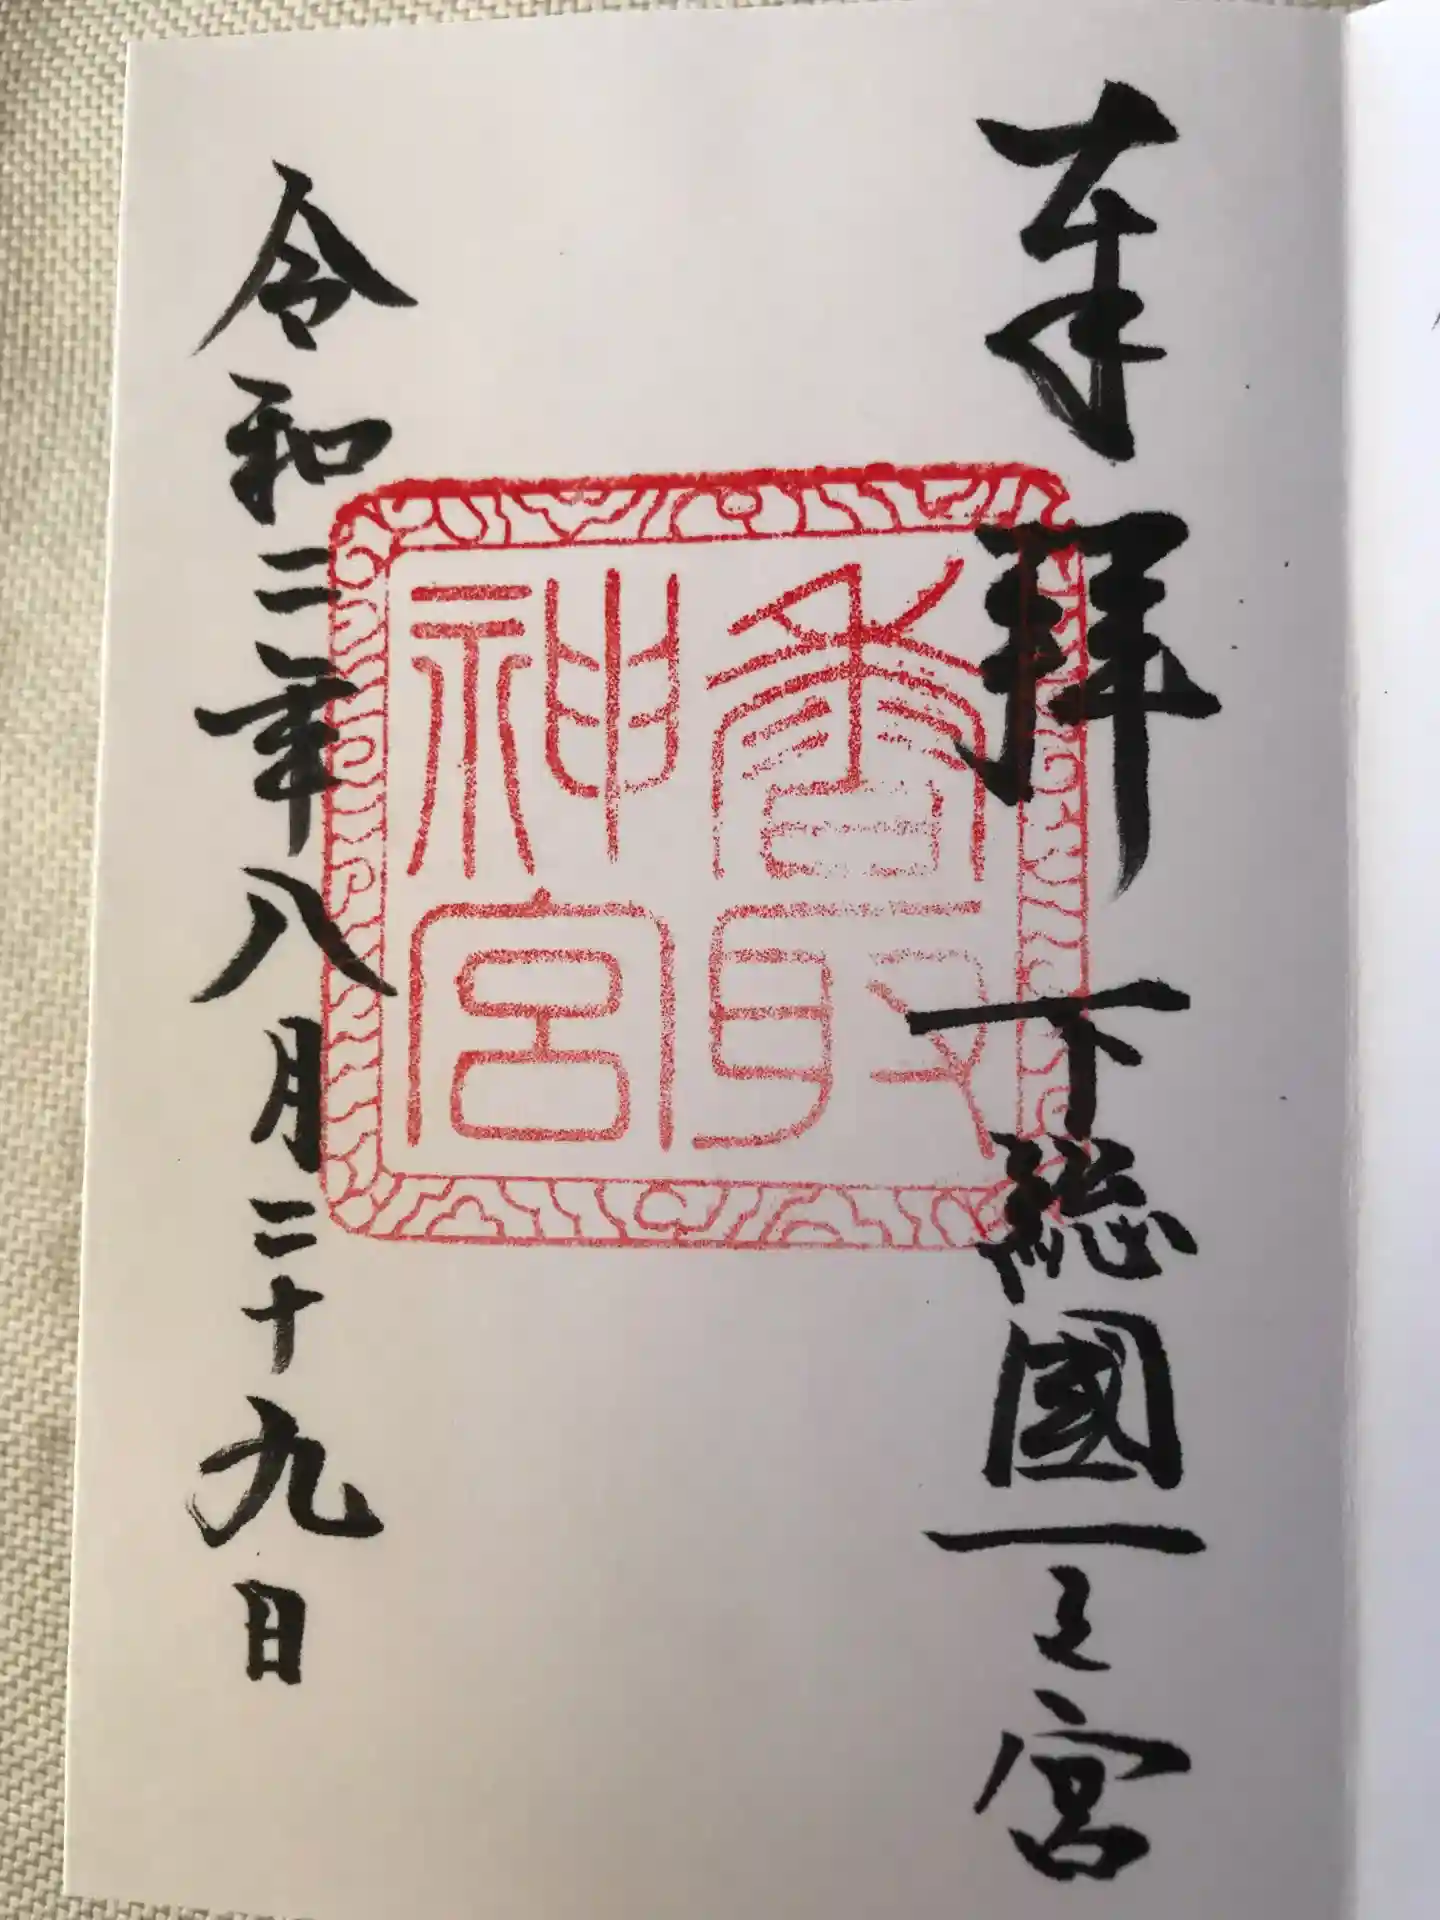 奉拝 下総國一之宮
香取神宮
令和二年八月二十九日